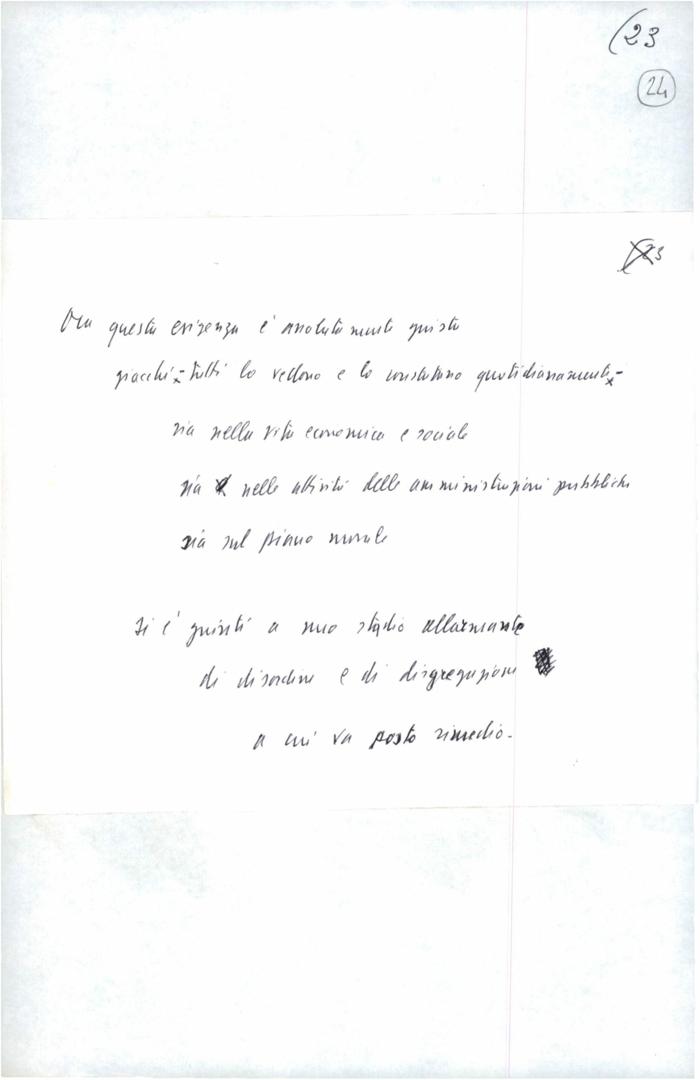 (23
24
23
Ora questa esigenza è assolutamente giusta
giacchè - tutti lo vedono e lo constatano quotidianamente -
sia nella vita economica e sociale
sia nelle attività delle amministrazioni pubbliche
sia sul piano morale
Si è giunti a uno stadio allarmante
di disordine e di disgregazione
a cui va posto rimedio.